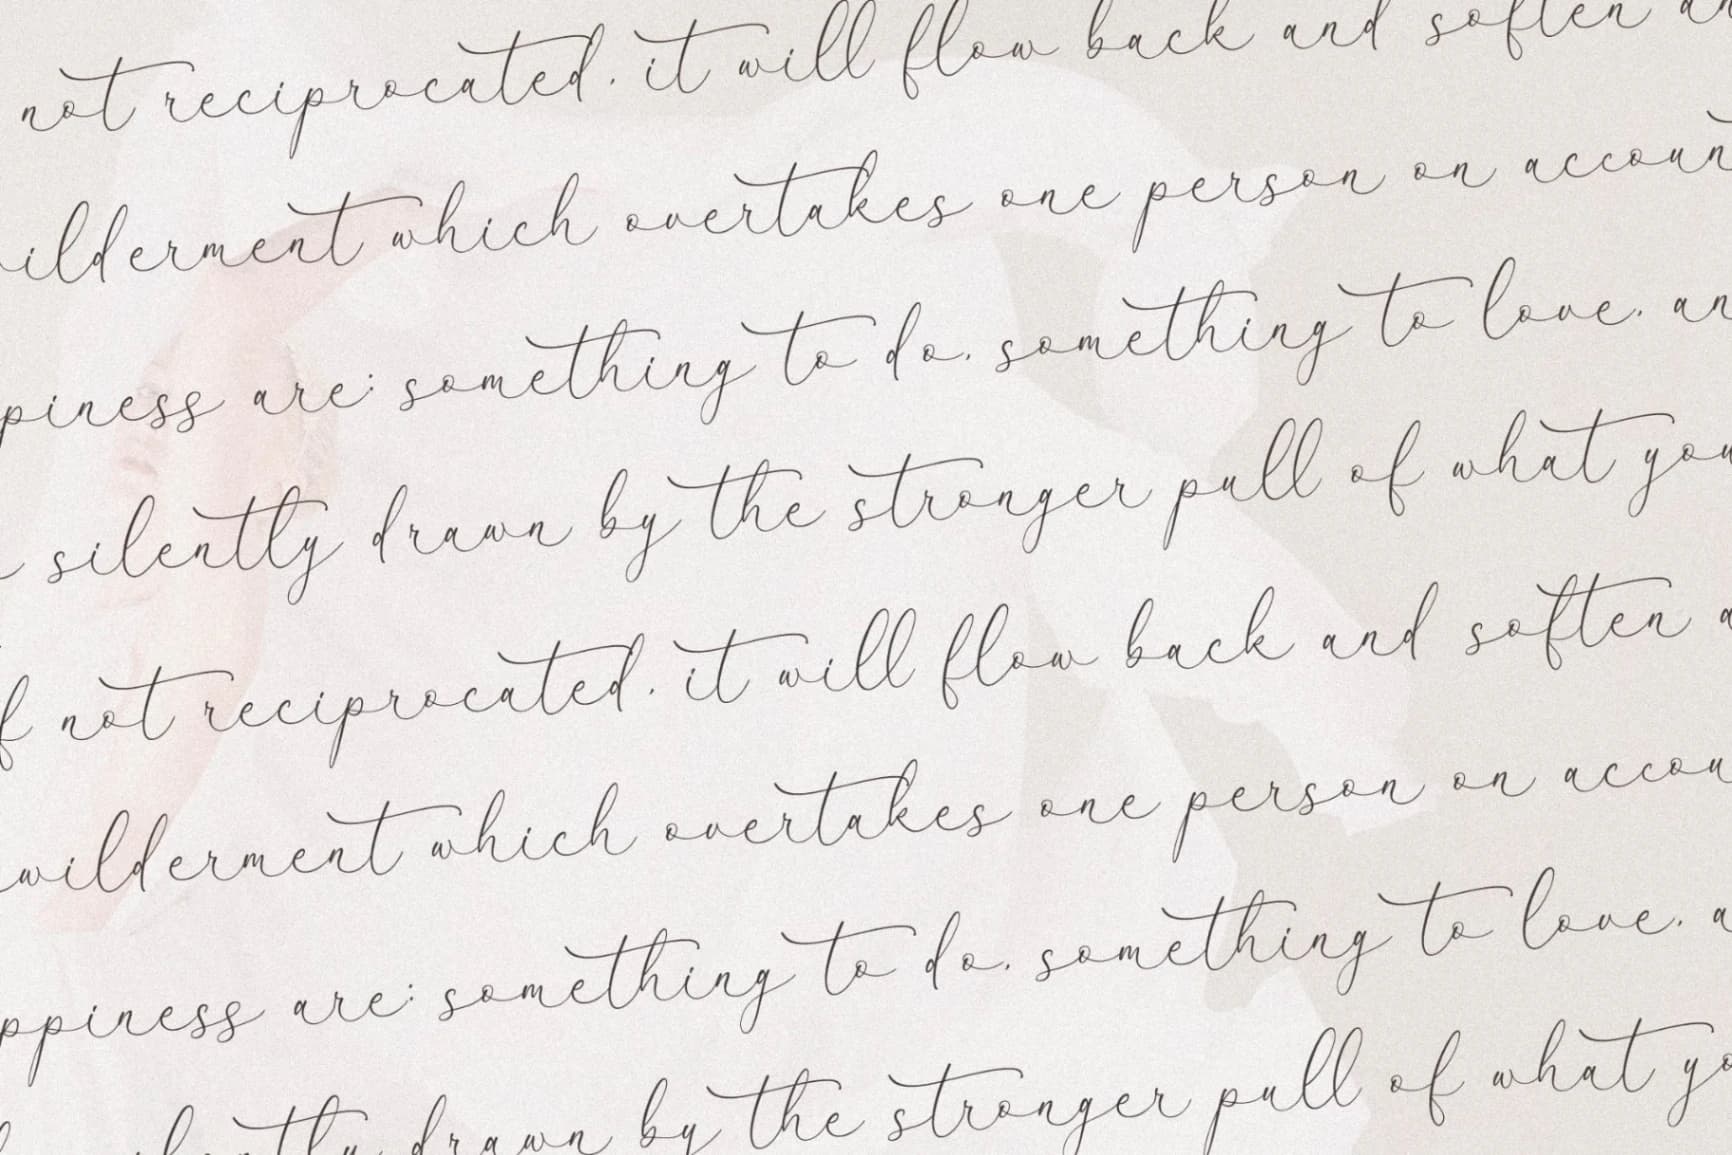 not reciprocated, it will flow back and soften an
wilderment which overtakes one person on account
piness are: something to do, something to love, an
silently drawn by the stronger pull of what you
f not reciprocated, it will flow back and soften a
wilderment which overtakes one person on accou
ppiness are: something to do, something to love, a
silently drawn by the stronger pull of what yo